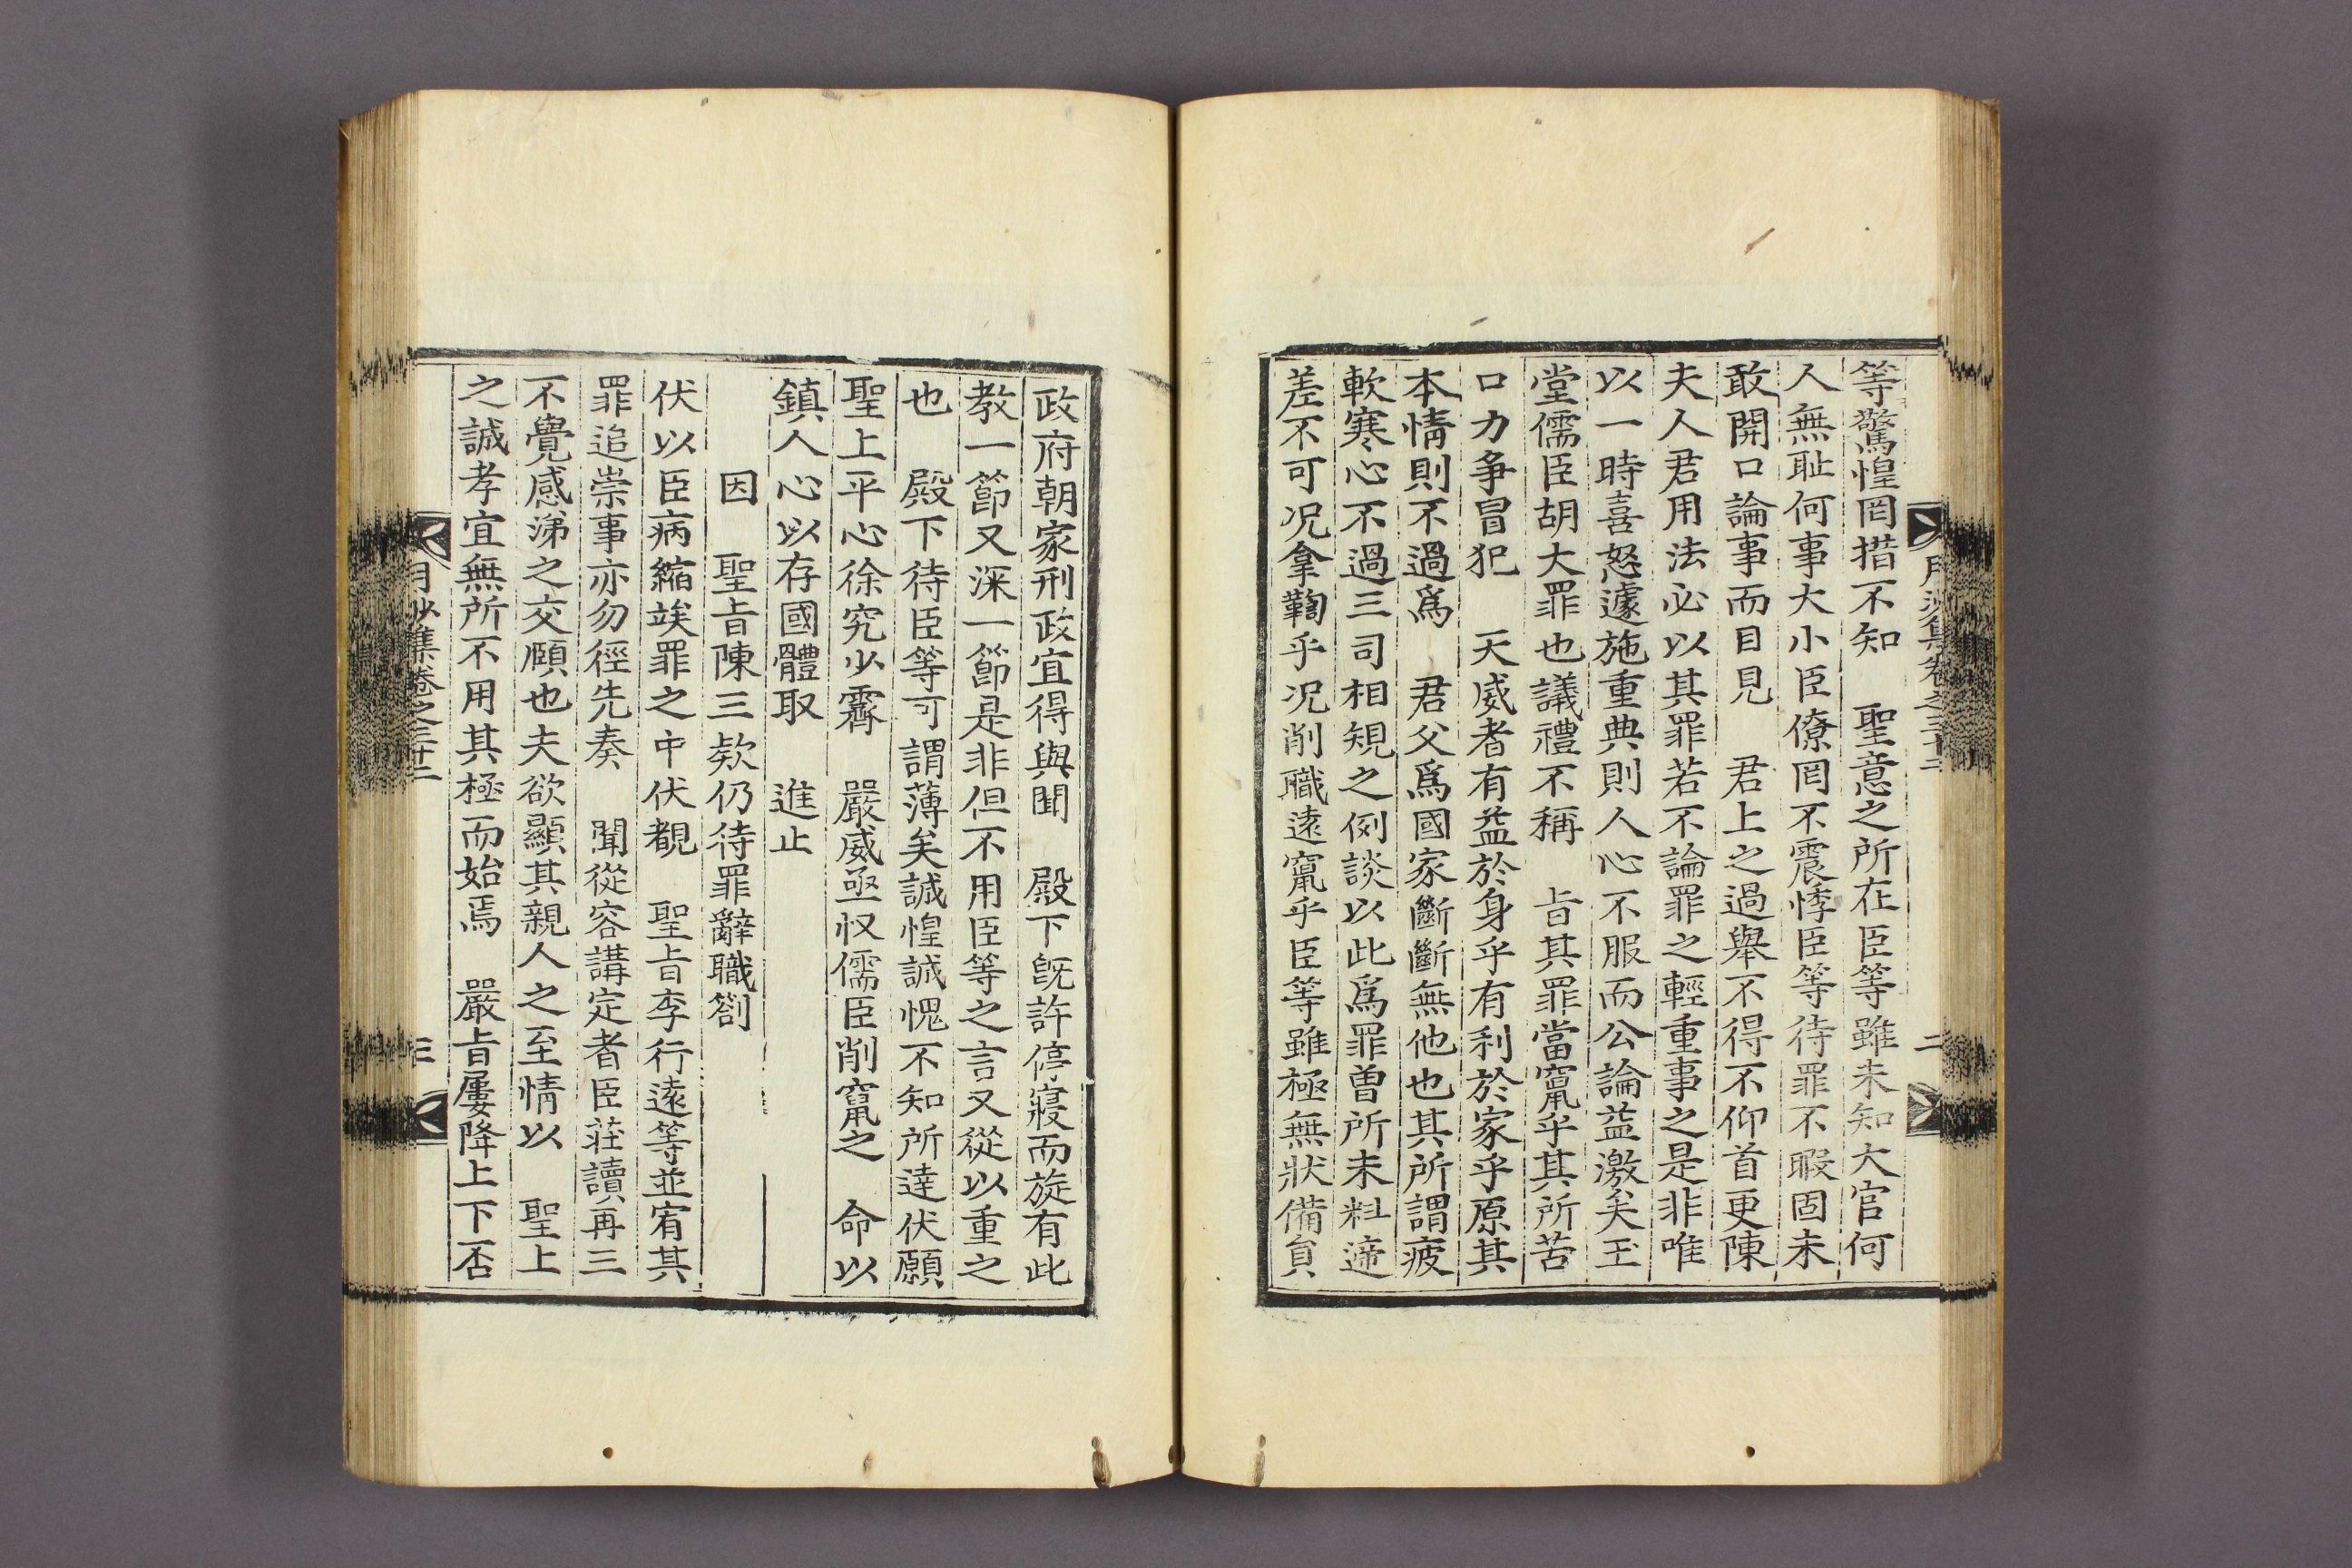 月沙集卷之三十二 二
等驚惶罔措不知 聖意之所在臣等雖未知大官何
人無耻何事大小臣僚罔不震悸臣等待罪不暇固未
敢開口論事而目見 君上之過擧不得不仰首更陳
夫人君用法必以其罪若不論罪之輕重事之是非唯
以一時喜怒遽施重典則人心不服而公論益激矣玉
堂儒臣胡大罪也議禮不稱 旨其罪當竄乎其所苦
口力爭冒犯 天威者有益於身乎有利於家乎原其
本情則不過爲 君父爲國家斷斷無他也其所謂疲
軟寒心不過三司相規之例談以此爲罪曾所未料遞
差不可况拿鞫乎况削職遠竄乎臣等雖極無狀備員
政府朝家刑政宜得與聞 殿下旣許停寢而旋有此
教一節又深一節是非但不用臣等之言又從以重之
也 殿下待臣等可謂薄矣誠惶誠愧不知所達伏願
聖上平心徐究少霽 嚴威亟收儒臣削竄之 命以
鎮人心以存國體取 進止
因 聖旨陳三欵仍待罪辭職劄
伏以臣病縮竢罪之中伏覩 聖旨李行遠等並宥其
罪追崇事亦勿徑先奏 聞從容講定者臣莊讀再三
不覺感涕之交頤也夫欲顯其親人之至情以 聖上
之誠孝宜無所不用其極而始焉 嚴旨屢降上下否
月沙集卷之三十二 三